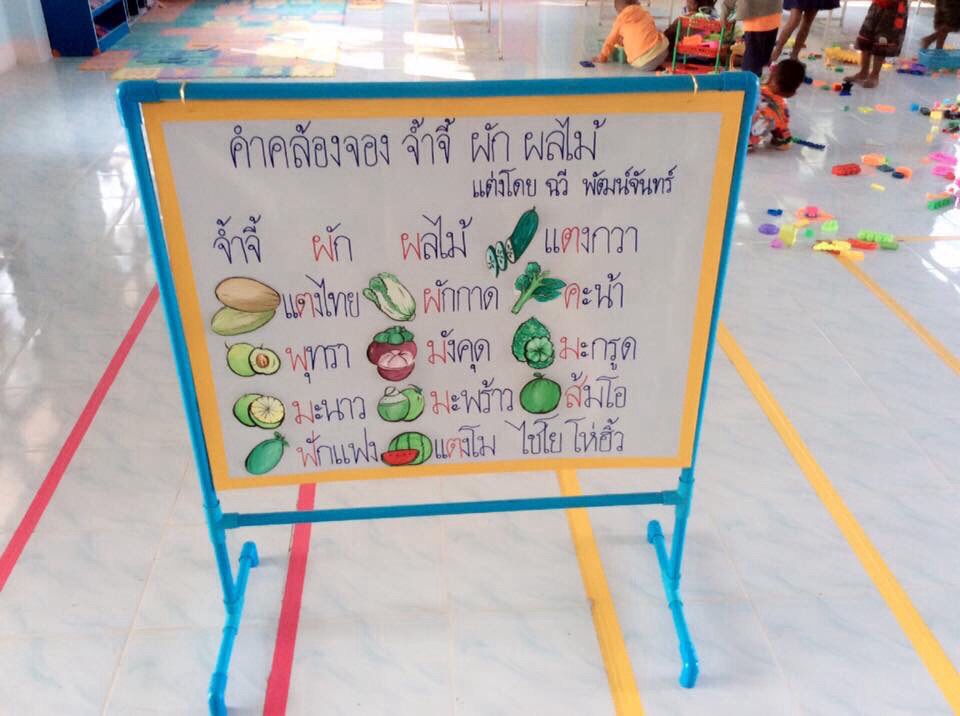 คำคล้องจอง จ้ำจี้ ผัก ผลไม้
แต่งโดย ฉวี พัฒน์จันทร์
จ้ำจี้ ผัก ผลไม้ แตงกวา
แตงไทย ผักกาด คะน้า
พุทรา มังคุด มะกรูด
มะนาว มะพร้าว ส้มโอ
ฟักแฟง แตงโม ไชโย โห่ฮิ้ว